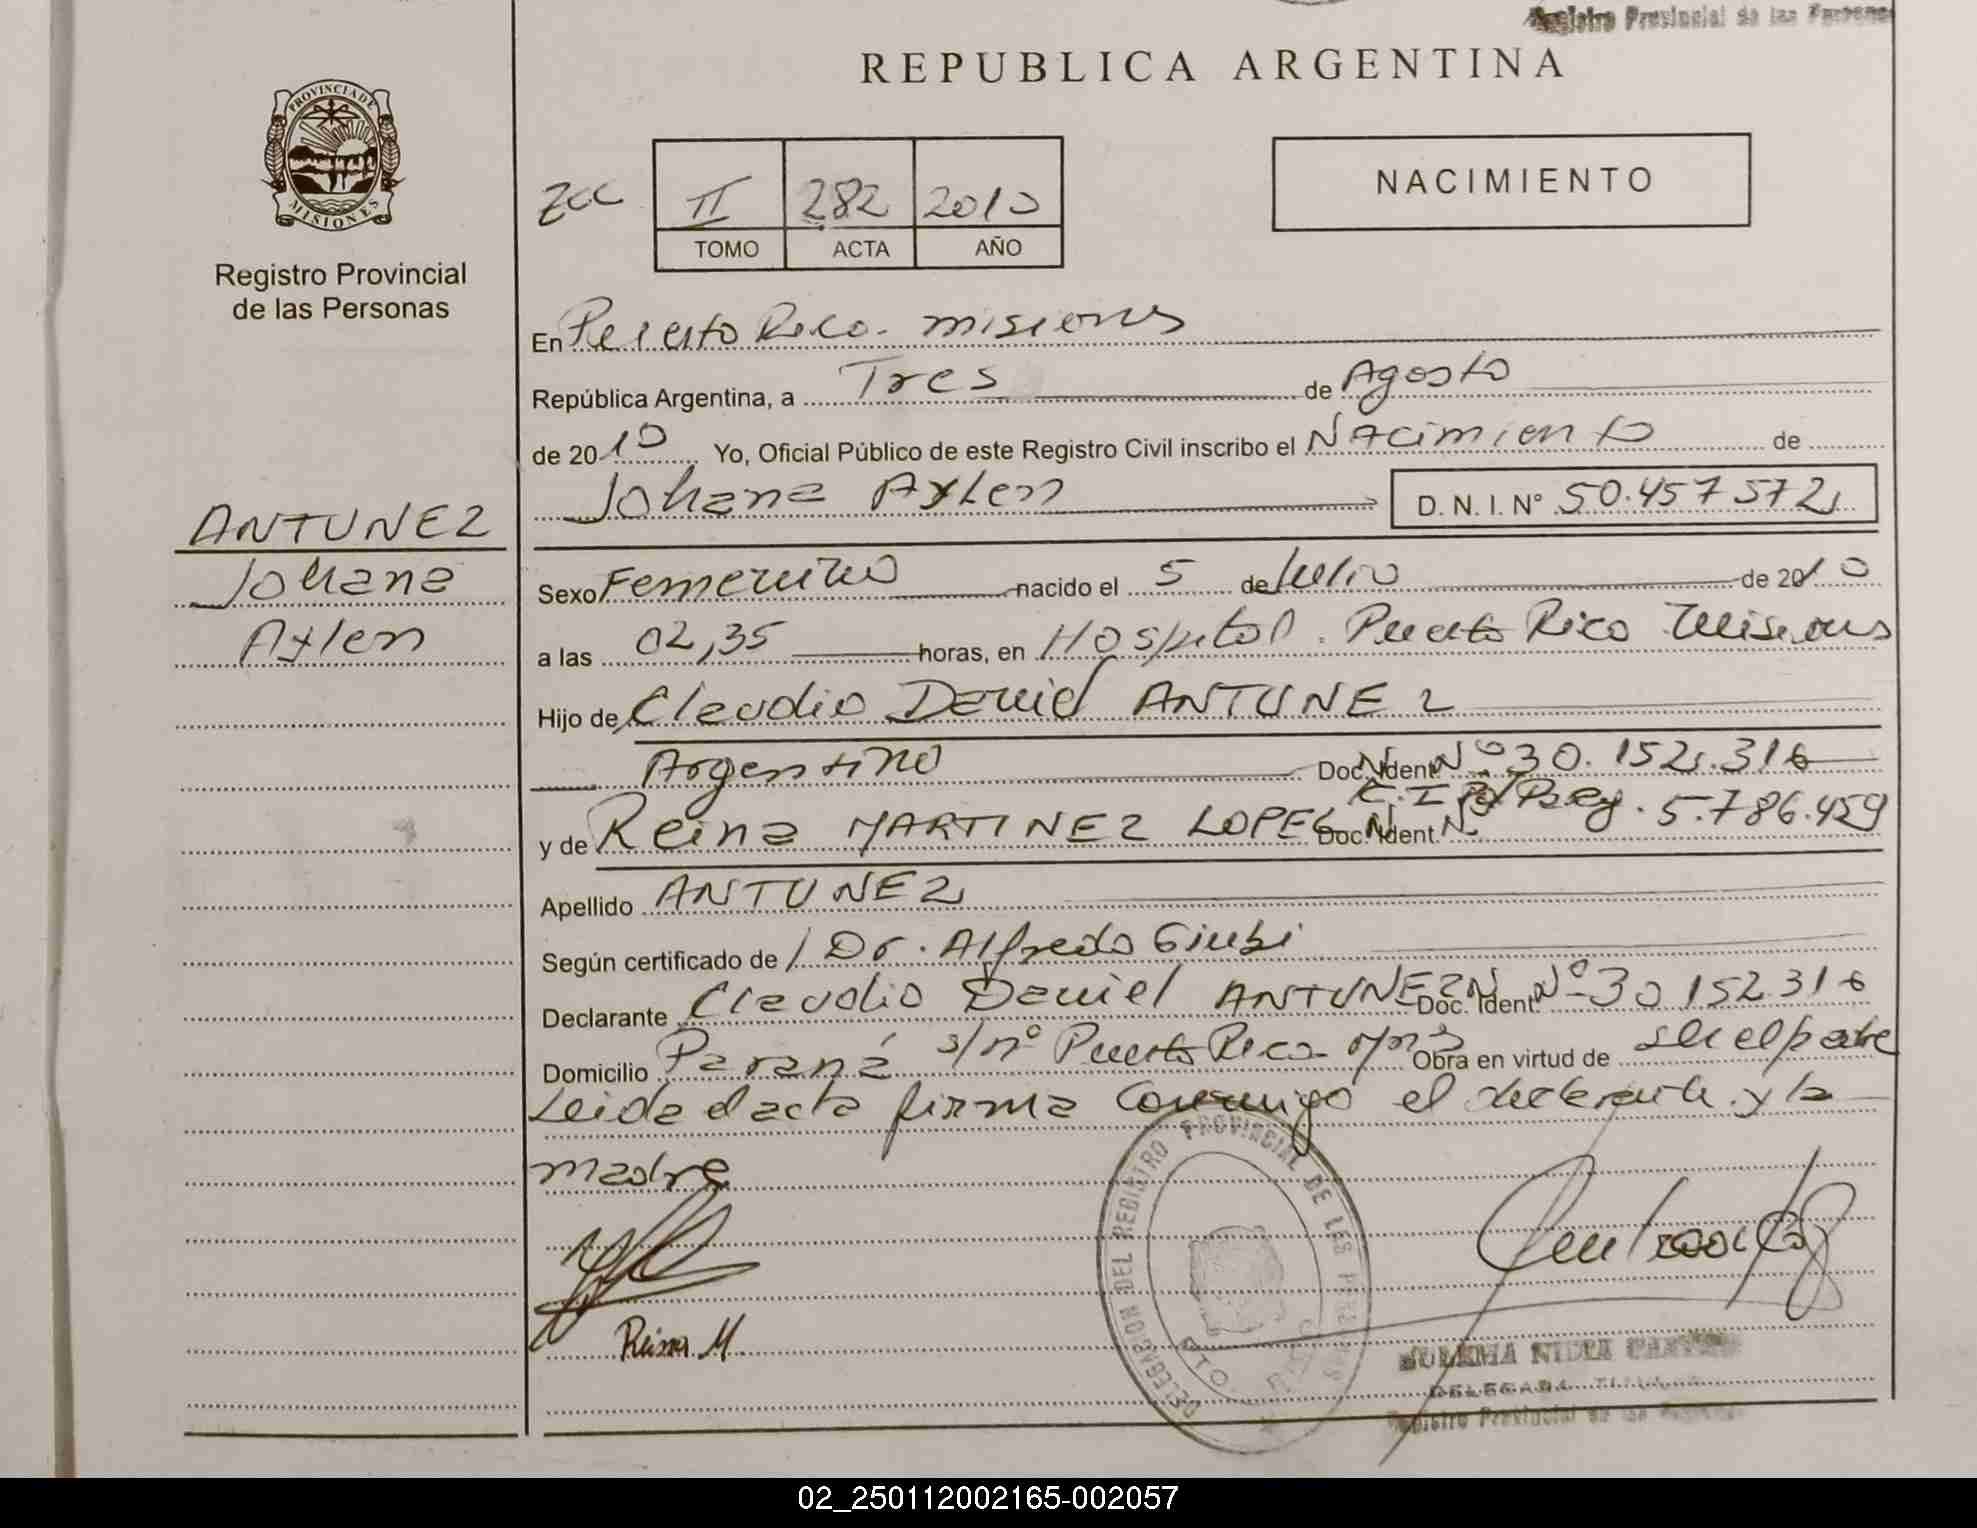 Registro Provincial de las Personas
REPUBLICA ARGENTINA
PROVINCIA DE
MISIONES
Registro Provincial
de las Personas
II 282 2010
TOMO ACTA AÑO
NACIMIENTO
En Puerto Rico. misiones
República Argentina, a Tres de Agosto
de 2010 Yo, Oficial Público de este Registro Civil inscribo el Nacimiento de
Johana Aylen D. N. I. Nº 50.457572
ANTUNEZ
Johana
Aylen
Sexo Femenino nacido el 5 de Julio de 2010
a las 02,35 horas, en Hospital. Puerto Rico Misiones
Hijo de Claudio Daniel ANTUNEZ
Argentino Doc. Ident. Nº 30.152.316
C.I. Pol Parag. 5.786.459
y de Reina MARTINEZ LOPEZ Doc. Ident. N
Apellido ANTUNEZ
Según certificado de Dr. Alfredo Giubi
Declarante Claudio Daniel ANTUNEZ Doc. Ident. Nº 30 152 316
Domicilio Paraná s/nº Puerto Rico Mnes Obra en virtud de ser el padre
Leida el acta firma conmigo el declarante y la
madre
Reina M.
DELEGACION DEL REGISTRO PROVINCIAL DE LAS PERSONAS
PTO.
DELEGADA TITULAR
Registro Provincial de las Personas
02_250112002165-002057